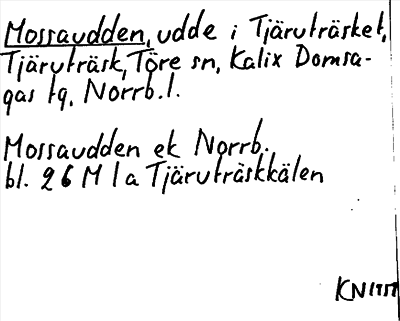 Mossaudden, udde i Tjäruträsket,
Tjäruträsk, Töre sn, Kalix Domsa-
gas tg, Norrb. l.
Mossaudden ek Norrb.
bl. 26 M 1 a Tjäruträskkälen
KN